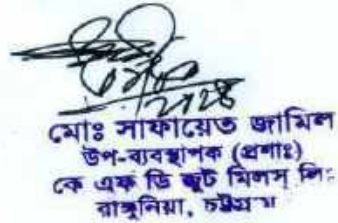 মোঃ সাফায়েত জামিল
উপ-ব্যবস্থাপক (প্রশাঃ)
কে এফ ডি জুট মিলস্ লিঃ
রাঙ্গুনিয়া, চট্টগ্রাম